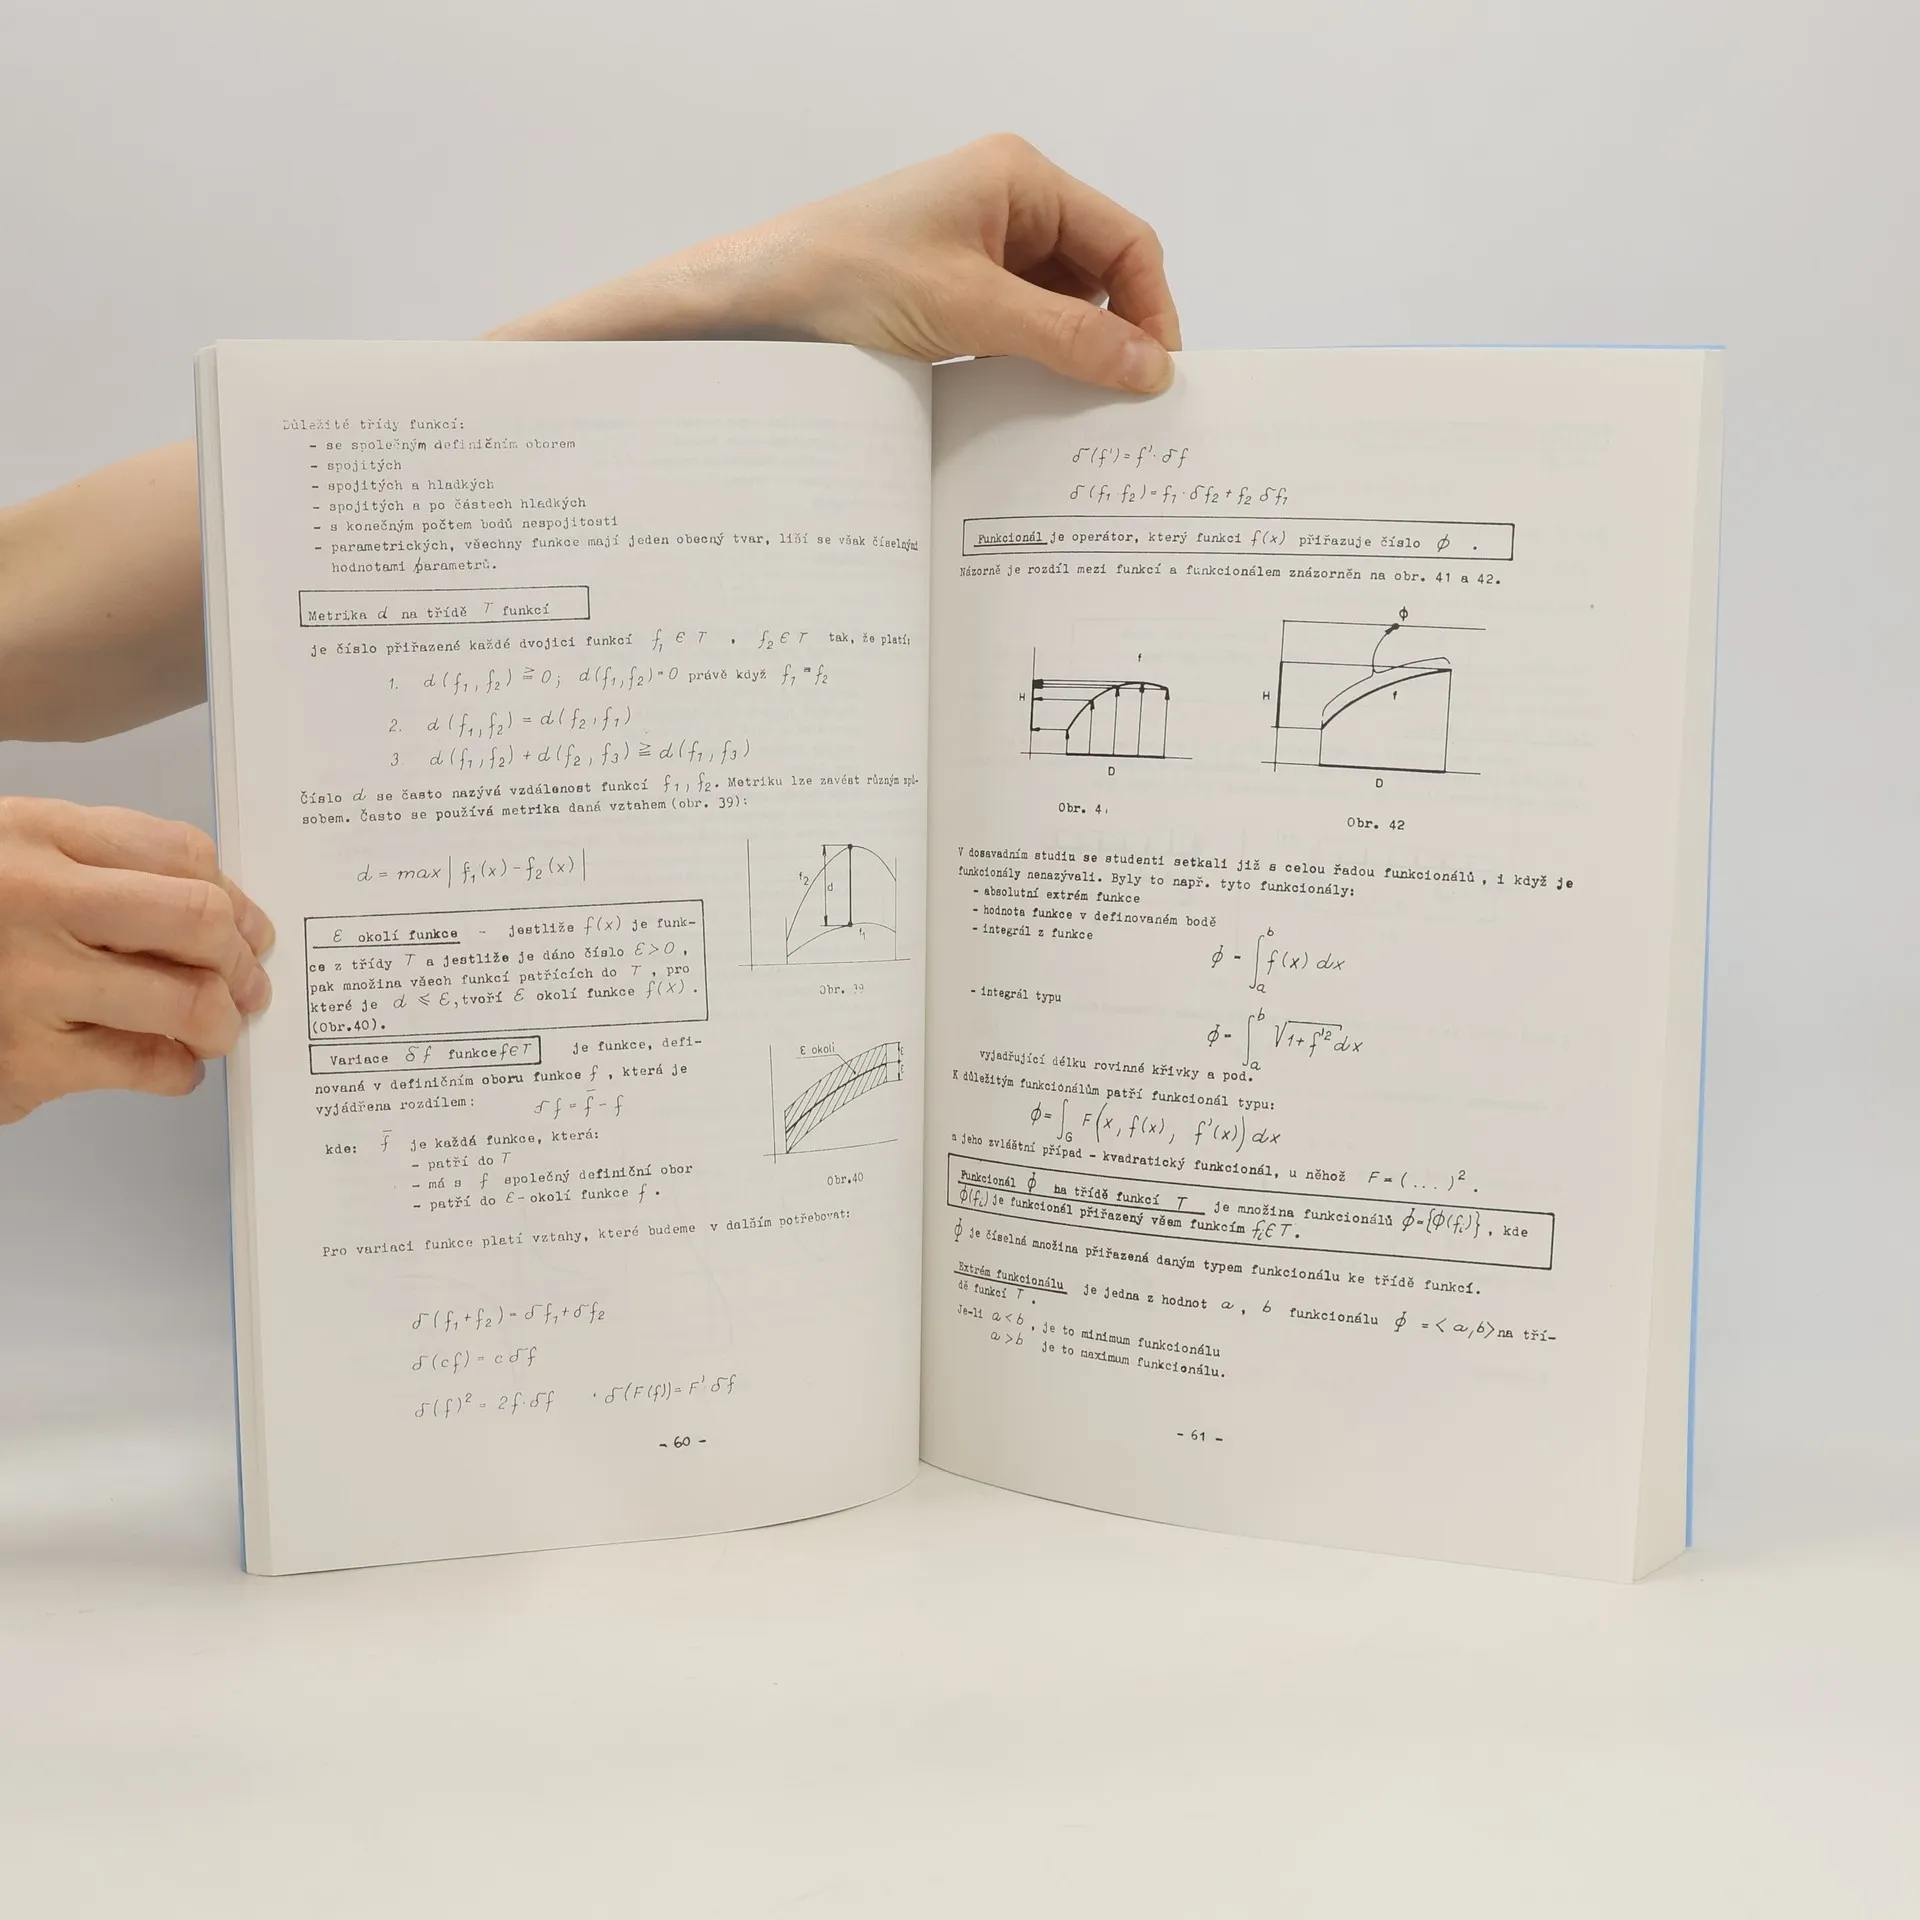 Důležité třídy funkcí:
- se společným definičním oborem
- spojitých
- spojitých a hladkých
- spojitých a po částech hladkých
- s konečným počtem bodů nespojitosti
- parametrických, všechny funkce mají jeden obecný tvar, liší se však číselnými
hodnotami parametrů.
Metrika d na třídě T funkcí
je číslo přiřazené každé dvojici funkcí f₁ ∈ T , f₂ ∈ T tak, že platí:
1. d(f₁, f₂) ≧ 0; d(f₁, f₂) = 0 právě když f₁ = f₂
2. d(f₁, f₂) = d(f₂, f₁)
3. d(f₁, f₂) + d(f₂, f₃) ≧ d(f₁, f₃)
Číslo d se často nazývá vzdáleností funkcí f₁, f₂. Metriku lze zavést různým způ-
sobem. Často se používá metrika daná vztahem (obr. 39):
d = max | f₁(x) - f₂(x) |
f₂
d
f₁
Obr. 39
ε okolí funkce - jestliže f(x) je funk-
ce z třídy T a jestliže je dáno číslo ε > 0 ,
pak množina všech funkcí patřících do T , pro
které je d ⩽ ε, tvoří ε okolí funkce f(x) .
(Obr.40).
Variace δf funkce f∈T je funkce, defi-
novaná v definičním oboru funkce f , která je
vyjádřena rozdílem: δf = f̄ - f
ε okolí
ε
ε
Obr.40
kde: f̄ je každá funkce, která:
- patří do T
- má s f společný definiční obor
- patří do ε - okolí funkce f .
Pro variaci funkce platí vztahy, které budeme v dalším potřebovat:
δ(f₁+f₂) = δf₁+δf₂
δ(cf) = c δf
δ(f)² = 2f·δf · δ(F(f)) = F' δf
- 60 -
δ(f') = f'· δf
δ(f₁·f₂) = f₁·δf₂ + f₂ δf₁
Funkcionál je operátor, který funkci f(x) přiřazuje číslo ϕ .
Názorně je rozdíl mezi funkcí a funkcionálem znázorněn na obr. 41 a 42.
H
f
D
Obr. 41
ϕ
H
f
D
Obr. 42
V dosavadním studiu se studenti setkali již s celou řadou funkcionálů , i když je
funkcionály nenazývali. Byly to např. tyto funkcionály:
- absolutní extrém funkce
- hodnota funkce v definovaném bodě
- integrál z funkce
ϕ = ∫ₐᵇ f(x) dx
- integrál typu
ϕ = ∫ₐᵇ √(1+f'²) dx
vyjadřující délku rovinné křivky a pod.
K důležitým funkcionálům patří funkcionál typu:
ϕ = ∫_G F(x, f(x), f'(x)) dx
a jeho zvláštní případ - kvadratický funkcionál, u něhož F = (...)² .
Funkcionál ϕ na třídě funkcí T je množina funkcionálů ϕ={ϕ(fᵢ)} , kde
ϕ(fᵢ) je funkcionál přiřazený všem funkcím fᵢ∈T .
ϕ je číselná množina přiřazená daným typem funkcionálu ke třídě funkcí.
Extrém funkcionálu je jedna z hodnot a , b funkcionálu ϕ = <a,b> na tří-
dě funkcí T .
Je-li a<b , je to minimum funkcionálu
a>b je to maximum funkcionálu.
- 61 -